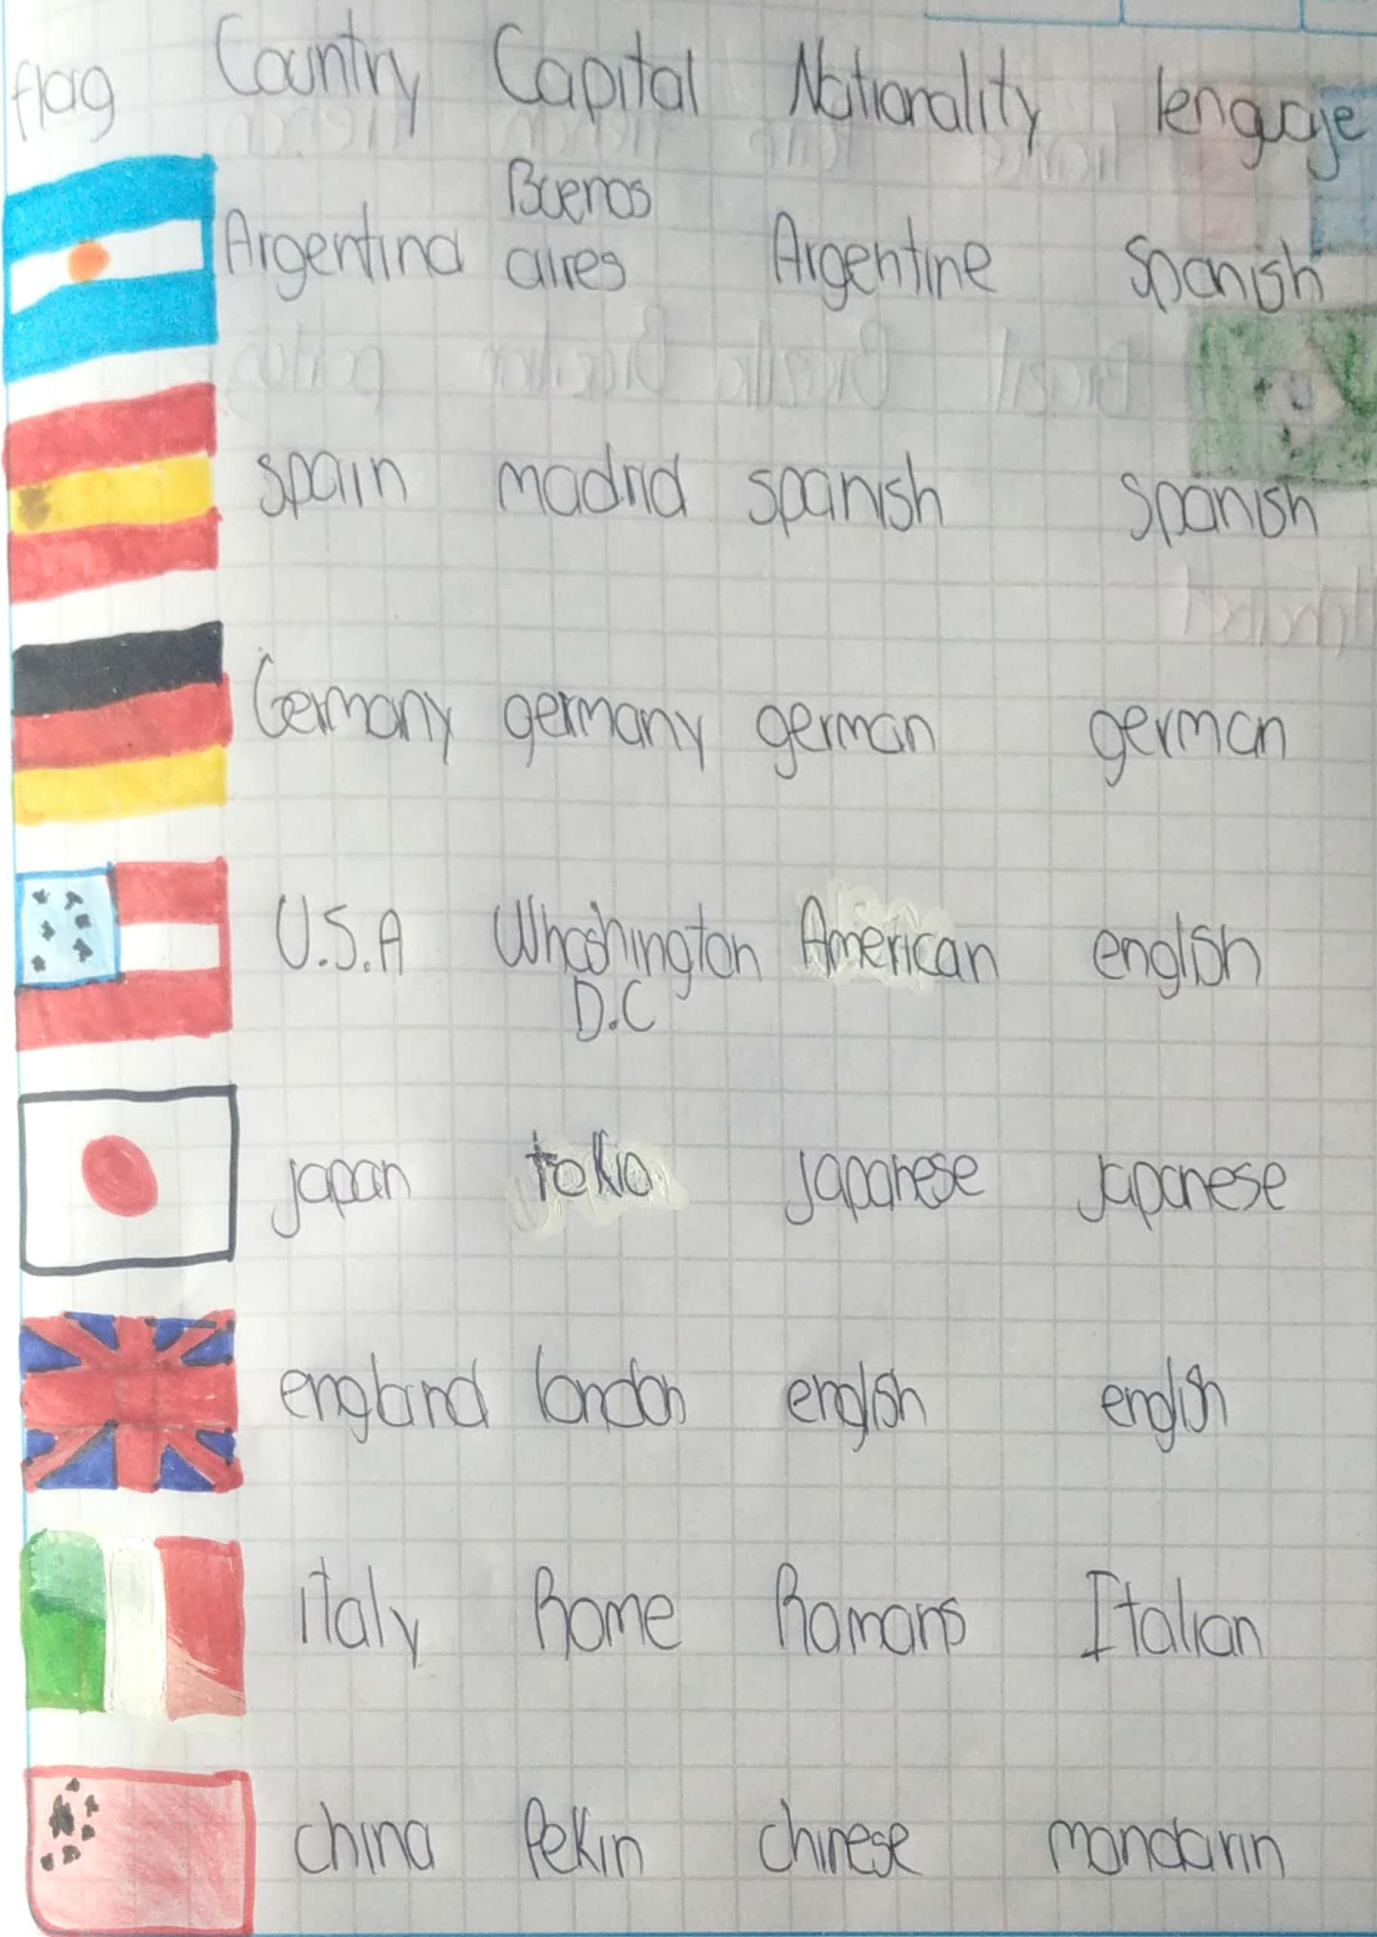 flag Country Capital Nationality lenguaje
Argentina Buenos aires Argentine Spanish
spain madrid spanish spanish
Germany germany german german
U.S.A Whashington D.C American english
japan tokio japanese japanese
england london english english
italy Rome Romans Italian
china Pekin chinese mandarin